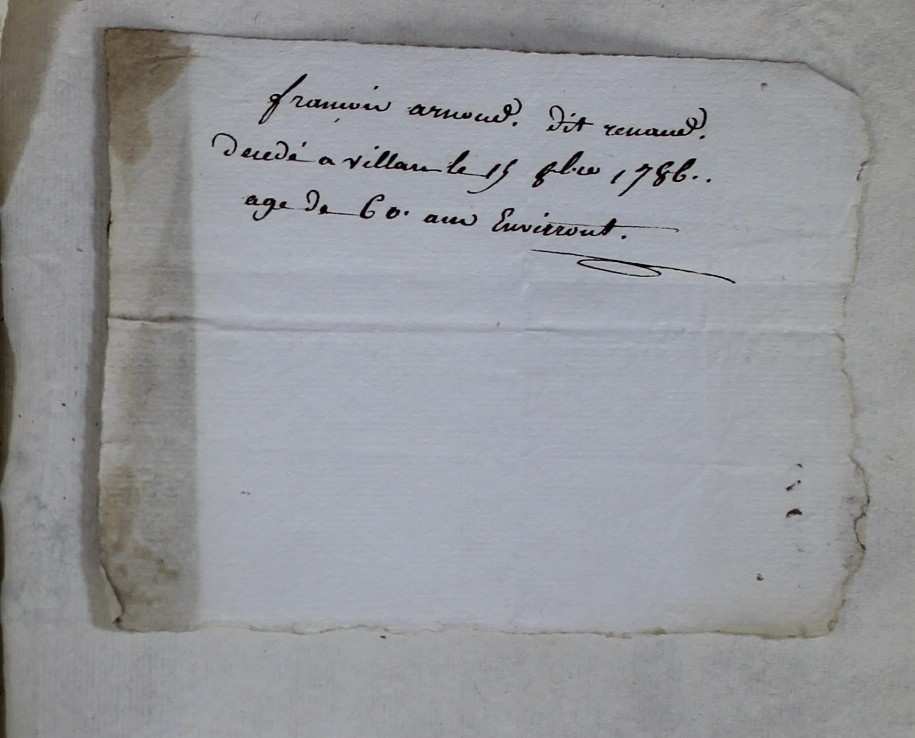 françois arnoud. dit renaud.
decedé a villar le 15 8bre 1786..
age de 60. ans Environt.